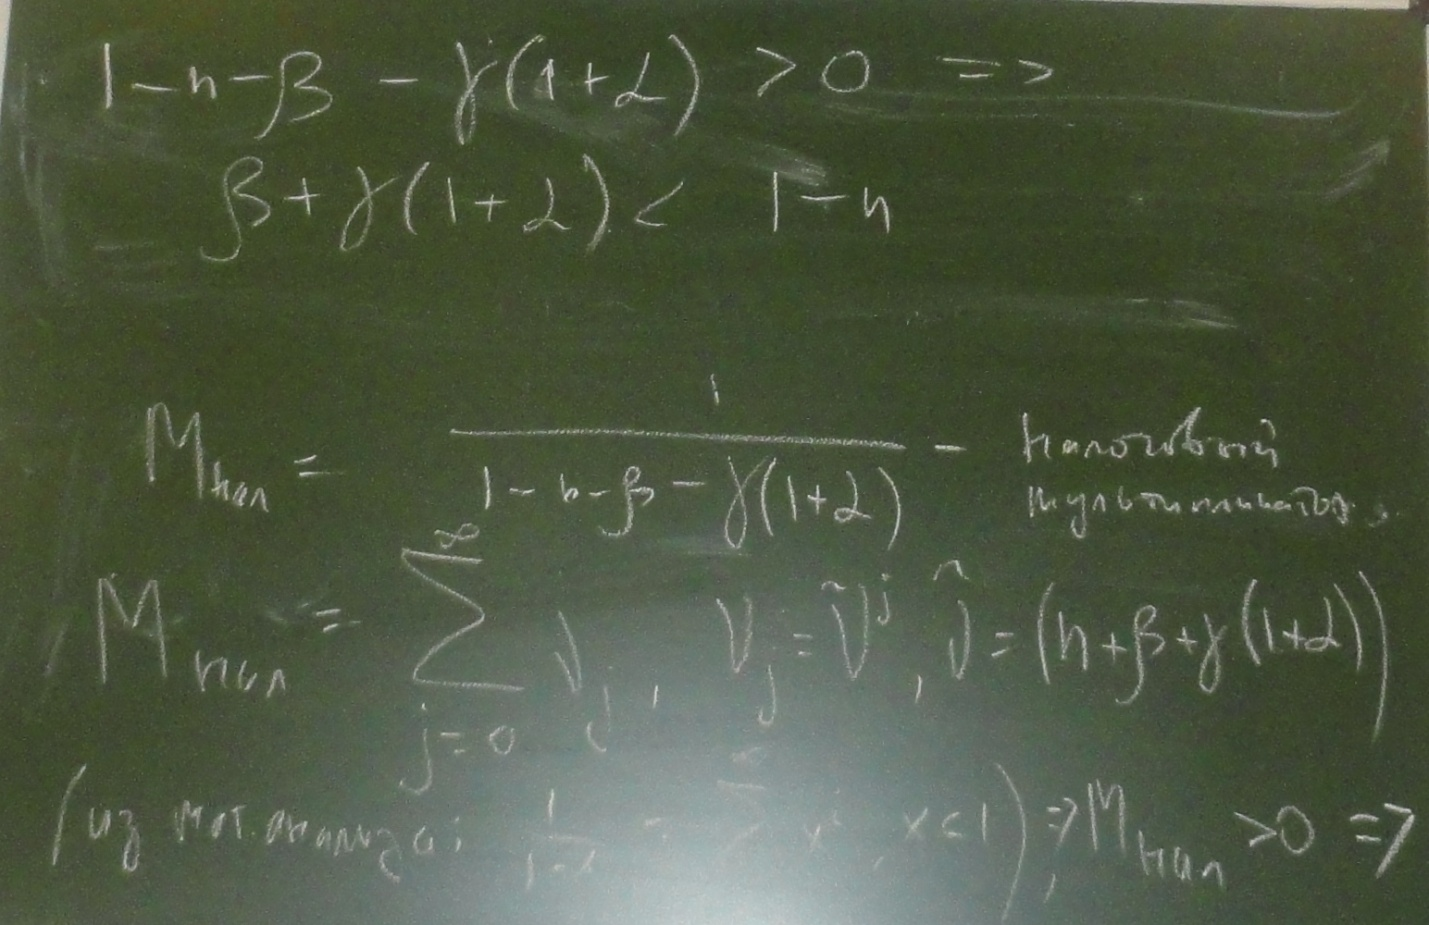 1-n-β - γ(1+α) > 0 =>
β+γ(1+α) < 1-n
M_нал = 1 / (1-n-β-γ(1+α)) - налоговый
мультипликатор,
M_нал = ∑_{j=0}^{∞} ν_j, ν_j = ν̃^j, ν̃ = (n+β+γ(1+α))
(из мат. анализа: 1/(1-x) = ∑^{∞} x^i, x<1), => M_нал > 0 =>